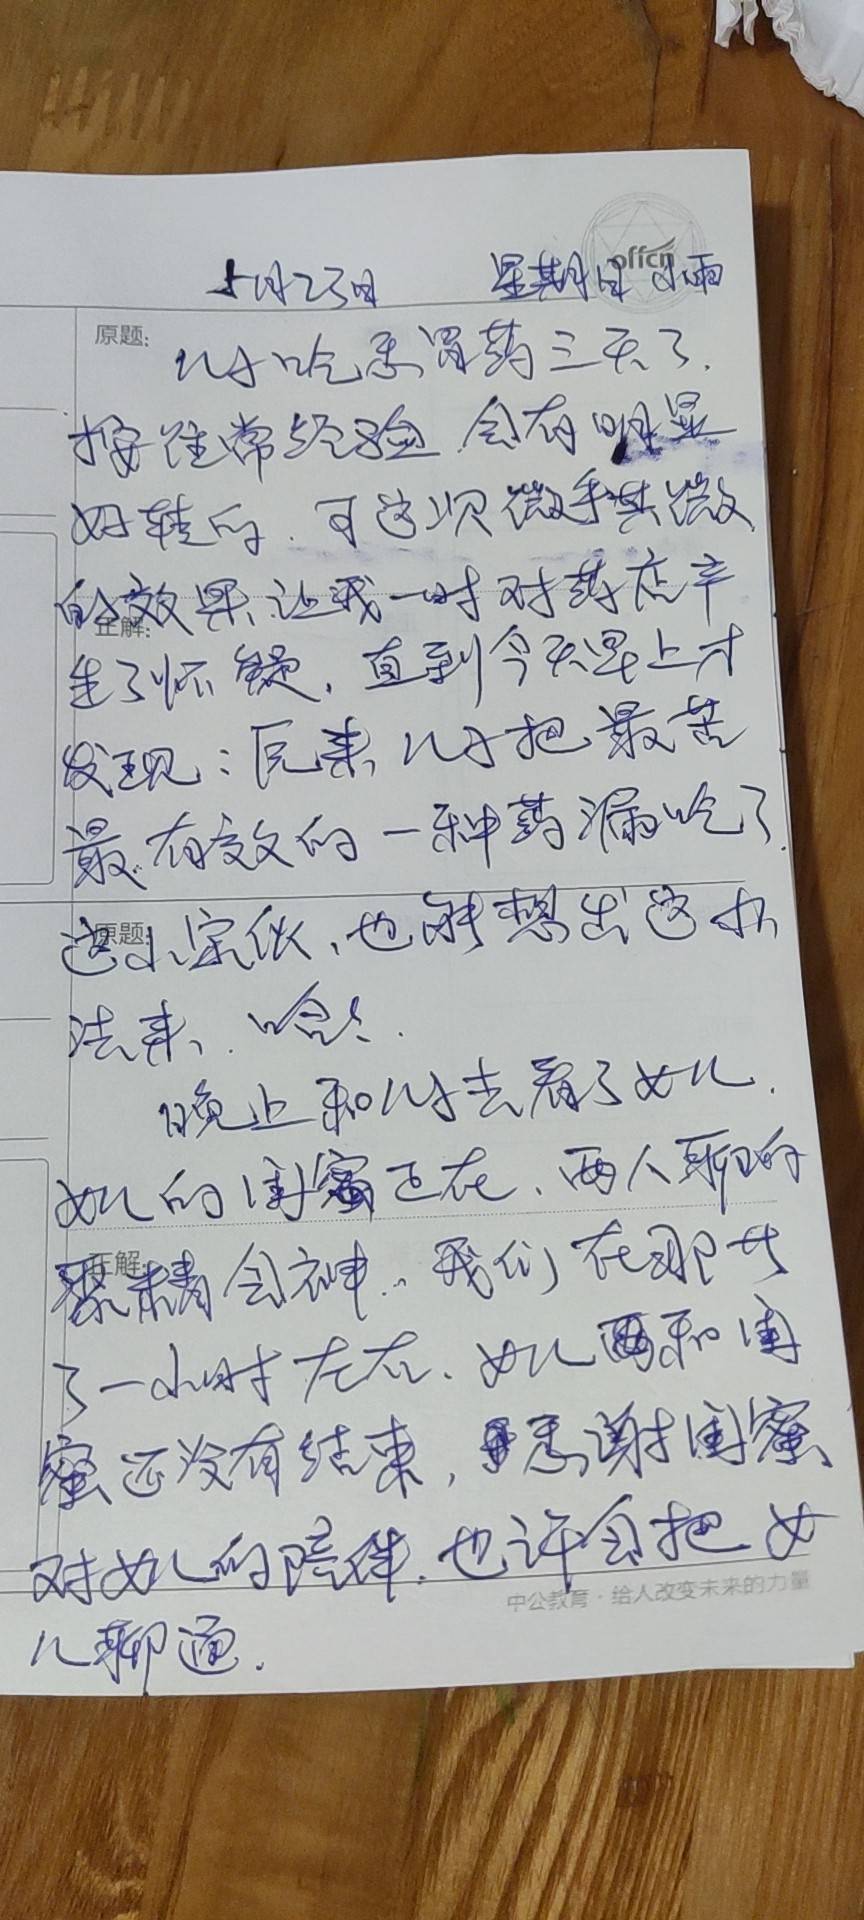 offcn
5月23日 星期日 小雨
原题:
儿子吃季胃药三天了.
按往常经验,会有明显
好转的,可这次微乎其微
的效果,让我一时对药店产
正解:
生了怀疑,直到今天早上才
发现:原来儿子把最苦
最有效的一种药漏吃了.
原题:
这小家伙,也能想出这办
法来,哈哈.
晚上和儿子去看了女儿.
女儿的闺蜜正在,两人聊的
正解:
聚精会神,我们在那廿
了一小时左右,女儿两和闺
蜜还没有结束,感谢闺蜜
对女儿的陪伴,也许会把女
中公教育·给人改变未来的力量
儿聊通.